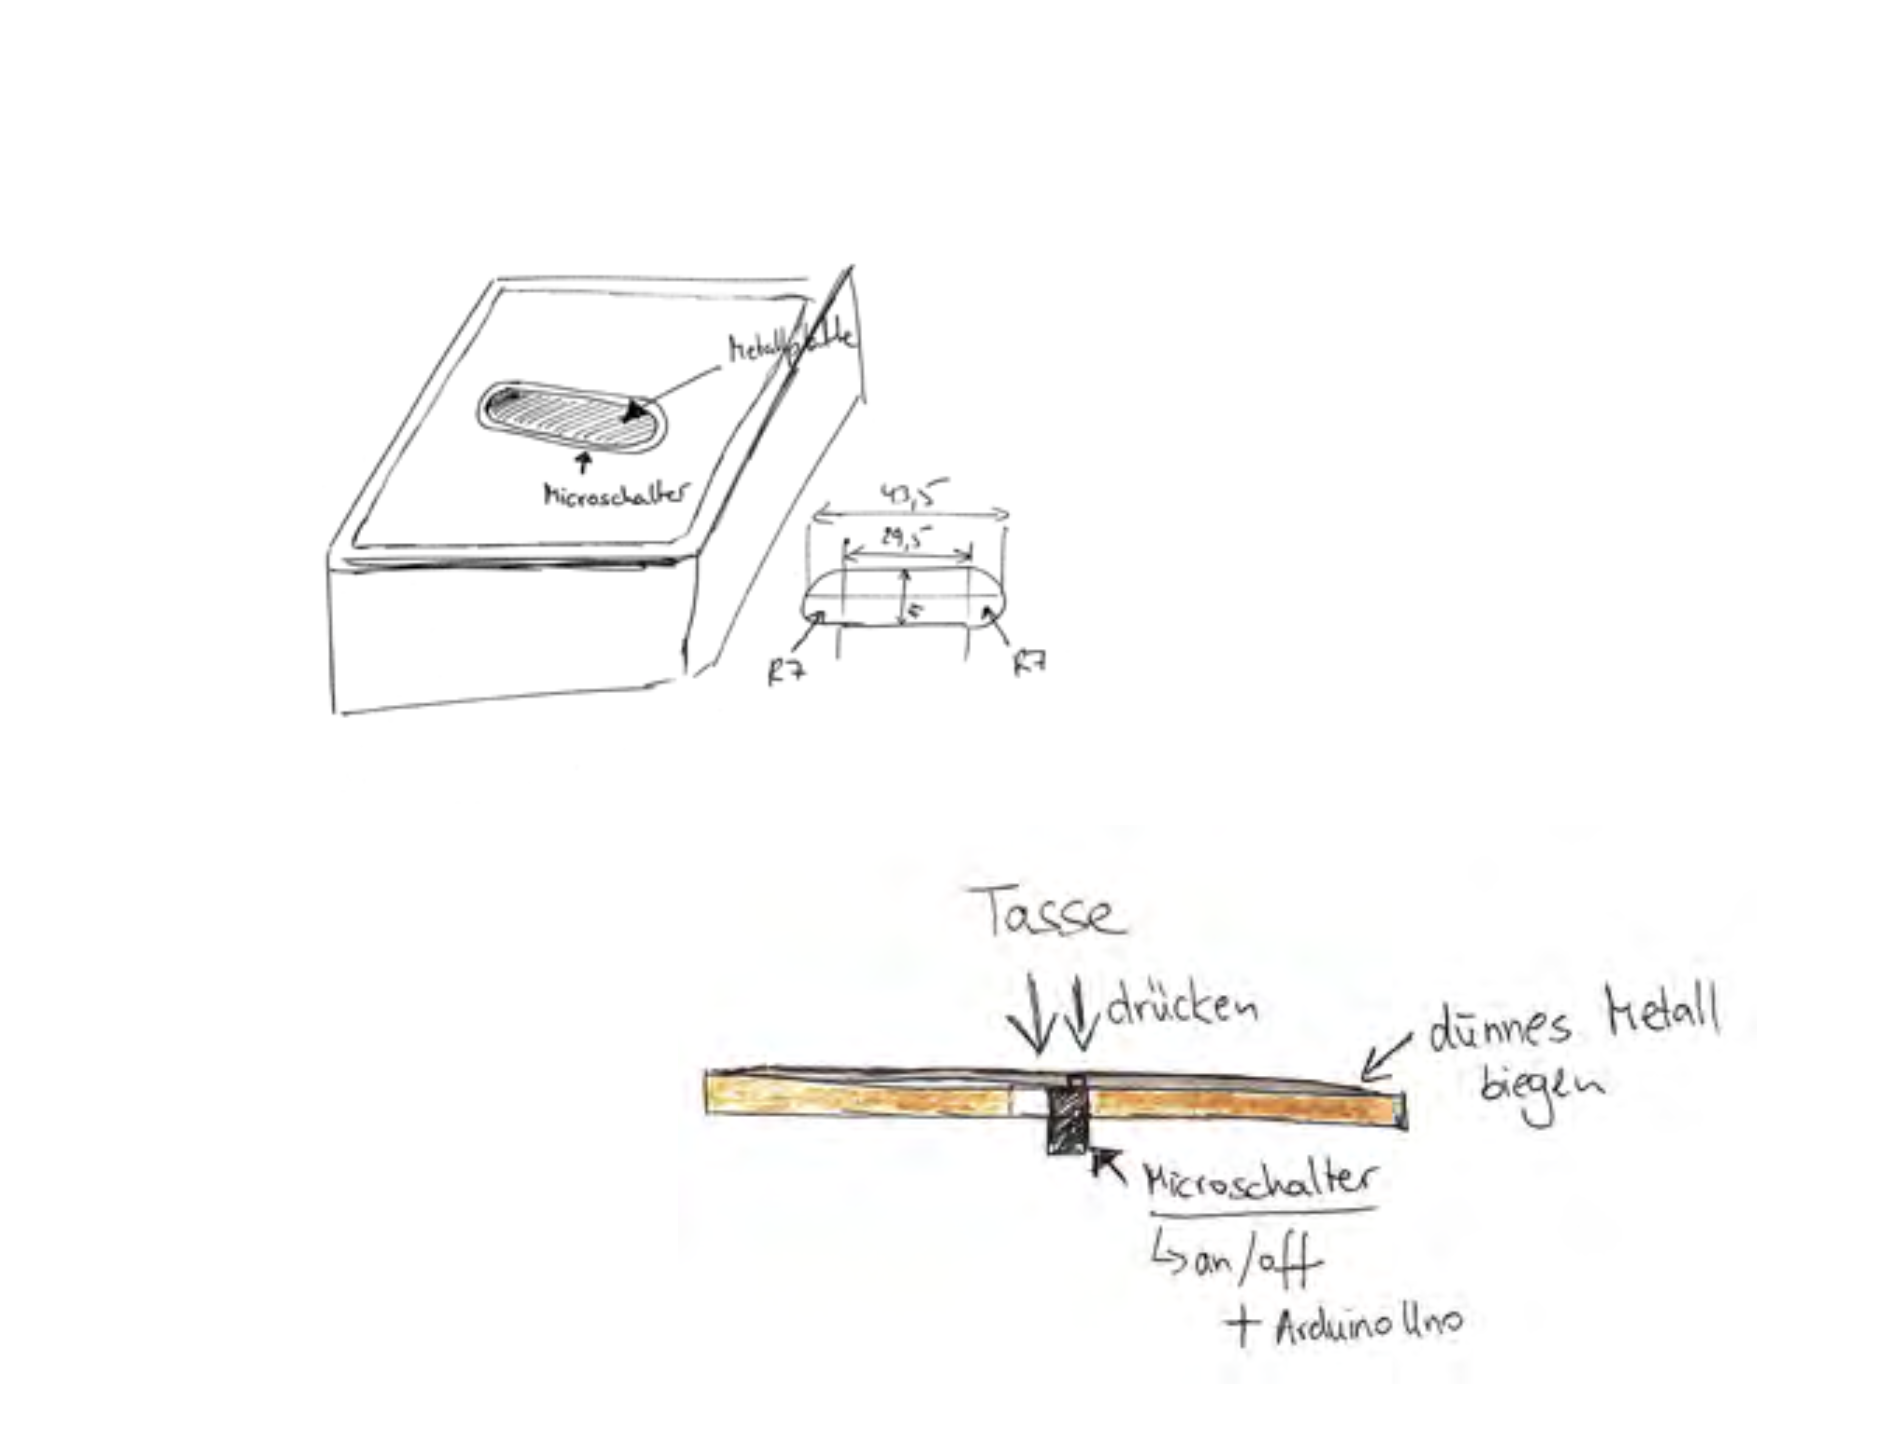 Metallplatte
Microschalter
43,5
29,5
R7
R7
Tasse
drücken
dünnes Metall
biegen
Microschalter
↳ an/off
+ Arduino Uno